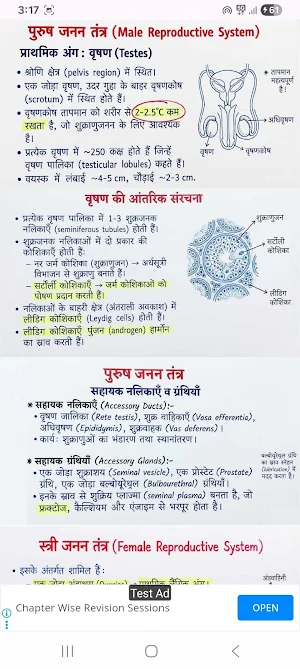 3:17
61
पुरुष जनन तंत्र (Male Reproductive System)
प्राथमिक अंग : वृषण (Testes)
• श्रोणि क्षेत्र (pelvis region) में स्थित।
• एक जोड़ा वृषण, उदर गुहा के बाहर वृषणकोष
(scrotum) में स्थित होते हैं।
• वृषणकोष तापमान को शरीर से 2–2.5°C कम
रखता है, जो शुक्राणुजनन के लिए आवश्यक
है।
• प्रत्येक वृषण में ~250 कक्ष होते हैं जिन्हें
वृषण पालिका (testicular lobules) कहते हैं।
• वयस्क में लंबाई ~4–5 cm, चौड़ाई ~2–3 cm.
* तापमान
महत्वपूर्ण
है !
अधिवृषण
वृषण
वृषणकोष
वृषण की आंतरिक संरचना
• प्रत्येक वृषण पालिका में 1-3 शुक्रजनक
नलिकाएँ (seminiferous tubules) होती हैं।
• शुक्रजनक नलिकाओं में दो प्रकार की
कोशिकाएँ होती हैं:
– नर जर्म कोशिका (शुक्राणुजन) → अर्धसूत्री
विभाजन से शुक्राणु बनाते हैं।
– सर्टोली कोशिकाएँ → जर्म कोशिकाओं को
पोषण प्रदान करती हैं।
• नलिकाओं के बाहरी क्षेत्र (अंतराली अवकाश) में
लीडिग कोशिकाएँ (Leydig cells) होती हैं।
• लीडिग कोशिकाएँ पुंजन (androgen) हार्मोन
का स्राव करती हैं।
शुक्राणुजन
सर्टोली
कोशिका
लीडिग
कोशिका
पुरुष जनन तंत्र
सहायक नलिकाएँ व ग्रंथियाँ
* सहायक नलिकाएँ (Accessory Ducts):-
• वृषण जालिका (Rete testis), शुक्र वाहिकाएँ (Vasa efferentia),
अधिवृषण (Epididymis), शुक्रवाहक (Vas deferens) ।
• कार्य: शुक्राणुओं का भंडारण तथा स्थानांतरण।
* सहायक ग्रंथियाँ (Accessory Glands):-
• एक जोड़ा शुक्राशय (seminal vesicle), एक प्रोस्टेट (Prostate)
ग्रंथि, एक जोड़ा बल्बोयूरेथ्रल (Bulbourethral) ग्रंथियाँ।
• इनके स्राव से शुक्रिय प्लाज्मा (seminal plasma) बनता है, जो
फ्रक्टोज, कैल्शियम और एंजाइम से भरपूर होता है।
बल्बोयूरेथ्रल ग्रंथि
का स्राव स्नेहन
(lubrication) में
मदद करता है।
स्त्री जनन तंत्र (Female Reproductive System)
• इसके अंतर्गत शामिल हैं :
अंडवाहिनी
Test Ad
Chapter Wise Revision Sessions
OPEN